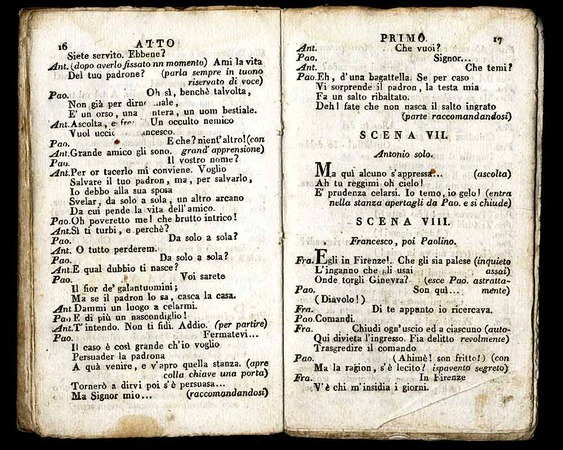 16 ATTO
Siete servito. Ebbene?
Ant. (dopo averlo fissato nn momento) Ami la vita
Del tuo padrone? (parla sempre in tuono
riservato di voce)
Pao. Oh sì, benchè talvolta,
Non già per
E' un orso, una un uom bestiale.
Ant. Ascolta, e Un occulto nemico
Vuol
Pao. E che? nient'altro! (con
Ant. Grande amico gli sono. grand' apprensione)
Pao. Il vostro nome?
Ant. Per or tacerlo mi conviene. Voglio
Salvare il tuo padron, ma, per salvarlo,
Io debbo alla sua sposa
Svelar, da solo a sola, un altro arcano
Da cui pende la vita dell'amico.
Pao. Oh poveretto me! che brutto intrico!
Ant. Sì ti turbi, e perchè?
Pao. Da solo a sola?
Ant. O tutto perderem.
Pao. Da solo a sola?
Ant. E qual dubbio ti nasce?
Pao. Voi sarete
Il fior de' galantuomini;
Ma se il padron lo sa, casca la casa.
Ant Dammi un luogo a celarmi.
Pao E di più un nascondiglio!
Ant. T'intendo. Non ti fidi. Addio. (per partire)
Pao. Fermatevi...
Il caso è così grande ch'io voglio
Persuader la padrona
A quà venire, e v'apro quella stanza. (apre
colla chiave una porta)
Tornerò a dirvi poi s'è persuasa...
Ma Signor mio... (raccomandandosi)
PRIMO 17
Ant. Che vuoi?
Pao. Signor...
Ant. Che temi?
Pao. Eh, d'una bagattella. Se per caso
Vi sorprende il padron, la testa mia
Fa un salto ribaltato.
Deh! fate che non nasca il salto ingrato
(parte raccomandandosi)
SCENA VII.
Antonio solo.
Ma qui alcuno s'appressa... (ascolta)
Ah tu reggimi oh cielo!
E' prudenza celarsi. Io temo, io gelo! (entra
nella stanza apertagli da Pao. e si chiude)
SCENA VIII.
Francesco, poi Paolino.
Fra. Egli in Firenze!. Che gli sia palese (inquieto
L'inganno che gli usai assai)
Onde torgli Ginevra? (esce Pao. astratta-
Pao. Son quì... mente)
(Diavolo!)
Fra. Di te appunto io ricercava.
Pao. Comandi.
Fra. Chiudi ogn'uscio ed a ciascuno (auto-
Qui divieta l'ingresso. Fia delitto revolmente)
Trasgredire il comando
Pao. (Ahimè! son fritto!) (con
Ma la ragion, s'è lecito? ispavento segreto)
Fra. In Firenze
V'è chi m'insidia i giorni.